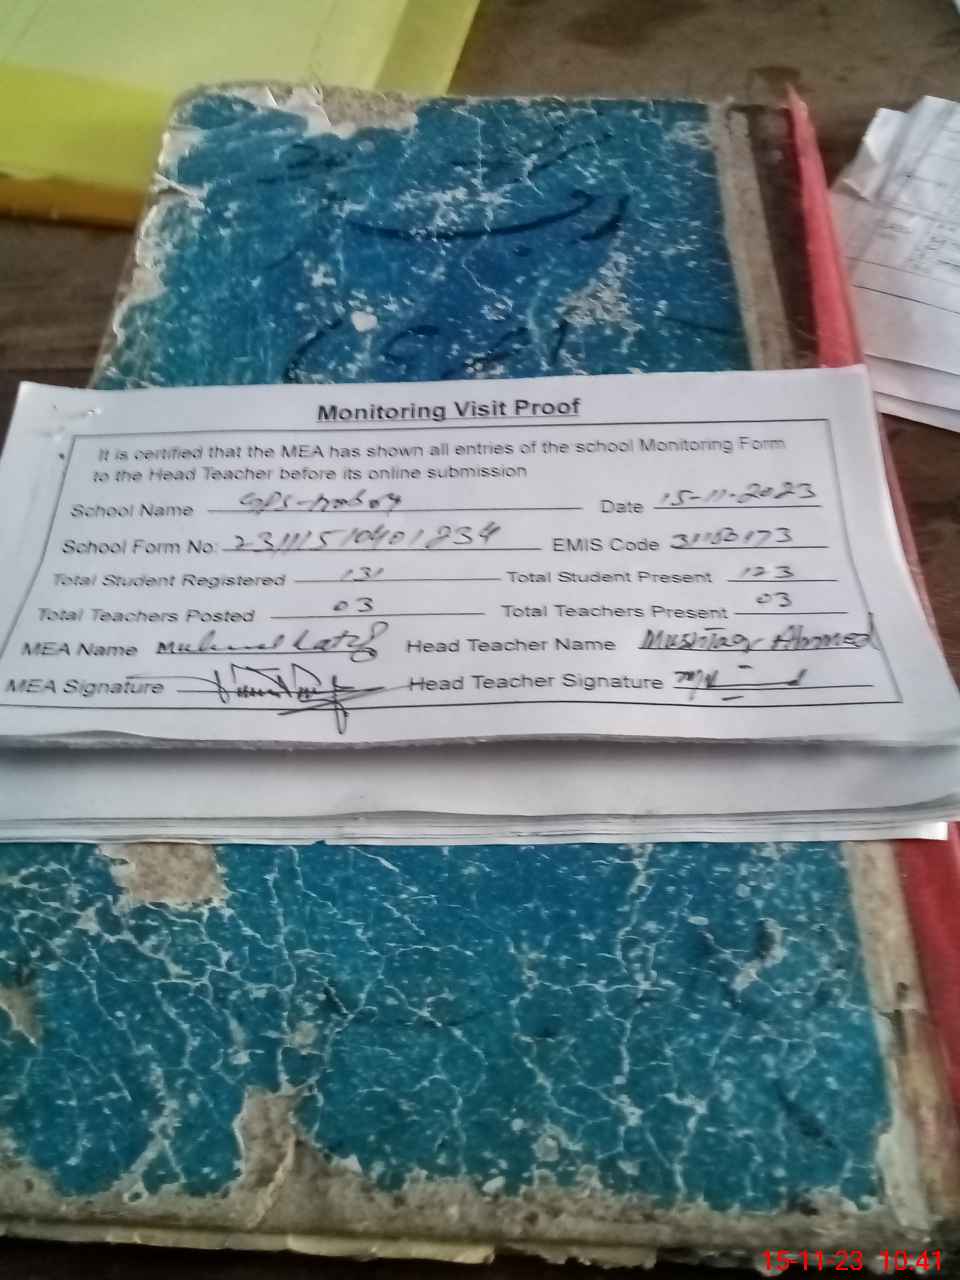 Monitoring Visit Proof
It is certified that the MEA has shown all entries of the school Monitoring Form
to the Head Teacher before its online submission
School Name Date 15-11-2023
School Form No: EMIS Code
Total Student Registered 131 Total Student Present 123
Total Teachers Posted 03 Total Teachers Present 03
MEA Name Head Teacher Name Mushtaq Ahmed
MEA Signature Head Teacher Signature
15-11-23 10:41